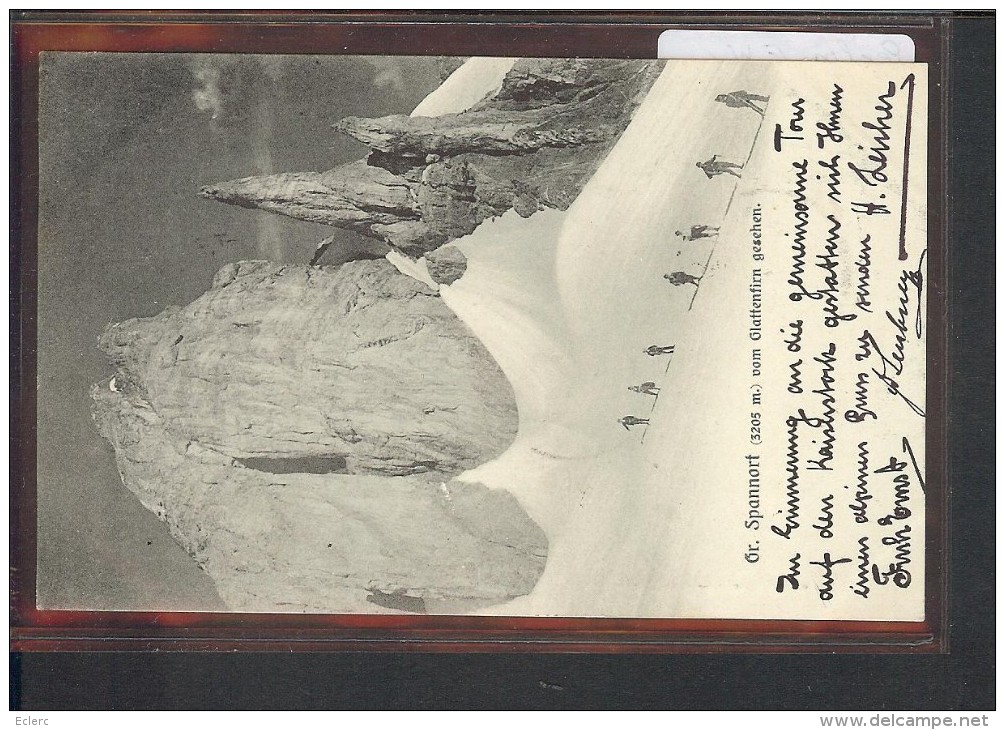 Gr. Spannort (3205 m.) vom Glattenfirn gesehen.
In Erinnerung an die gemeinsame Tour
auf den gestatten sich Ihnen
einen alpinen Gruss zu senden H.
Ernst
Eclerc
www.delcampe.net